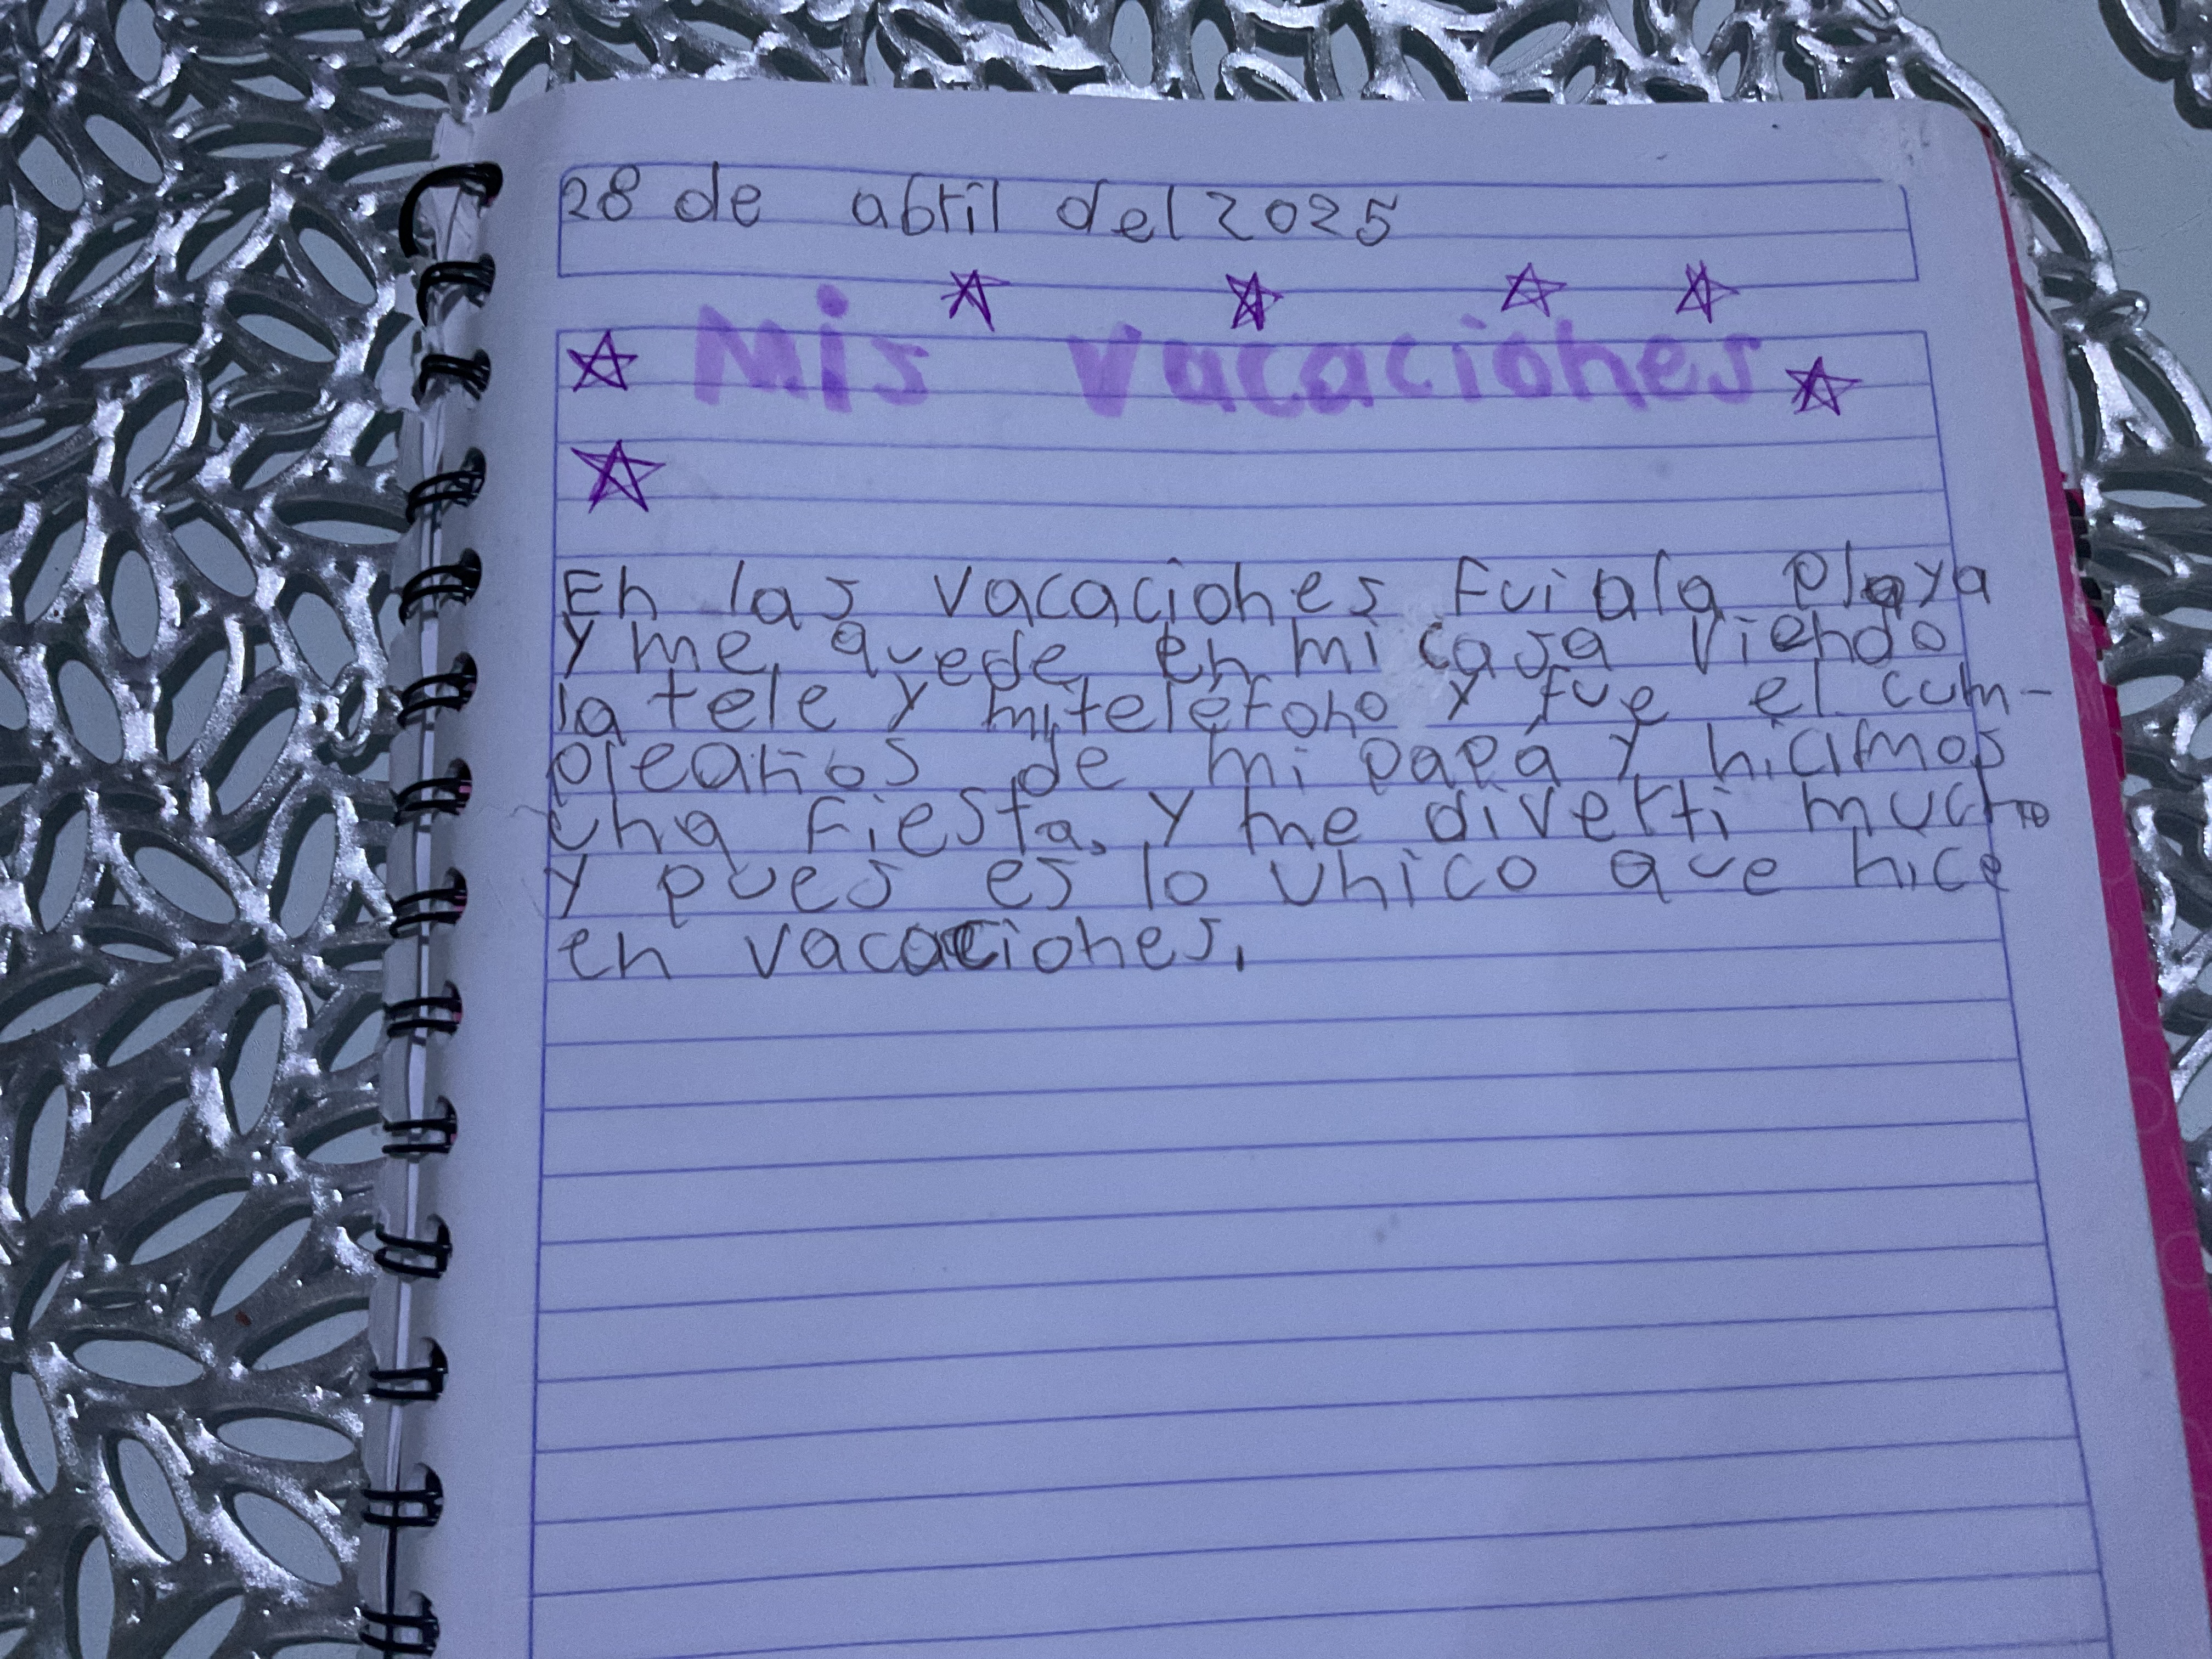 28 de abril del 2025
Mis vacaciones
En las vacaciones fui a la playa
y me quede en mi casa viendo
la tele y mi teléfono y fue el cum-
pleaños de mi papá y hicimos
una fiesta, y me diverti mucho
y pues es lo unico que hice
en vacaciones.